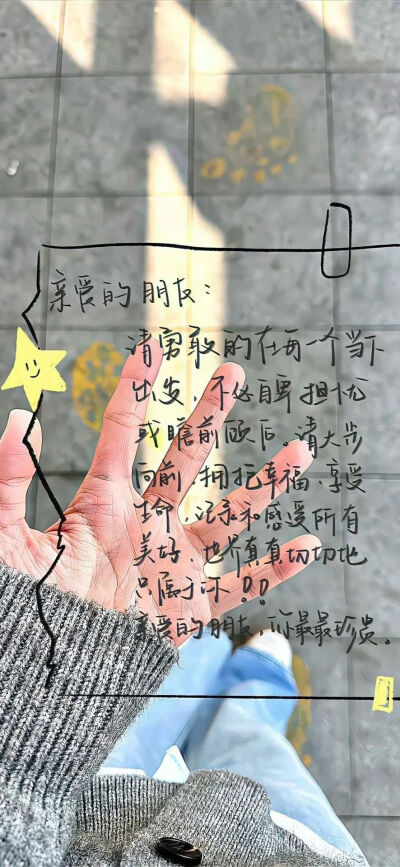 亲爱的朋友:
请勇敢的在每一个当下
出发,不必自卑担忧
或瞻前顾后。请大步
向前,拥抱幸福、享受
生命,记录和感受所有
美好,世界真真切切地
只属于你!!
亲爱的朋友,你最最珍贵。